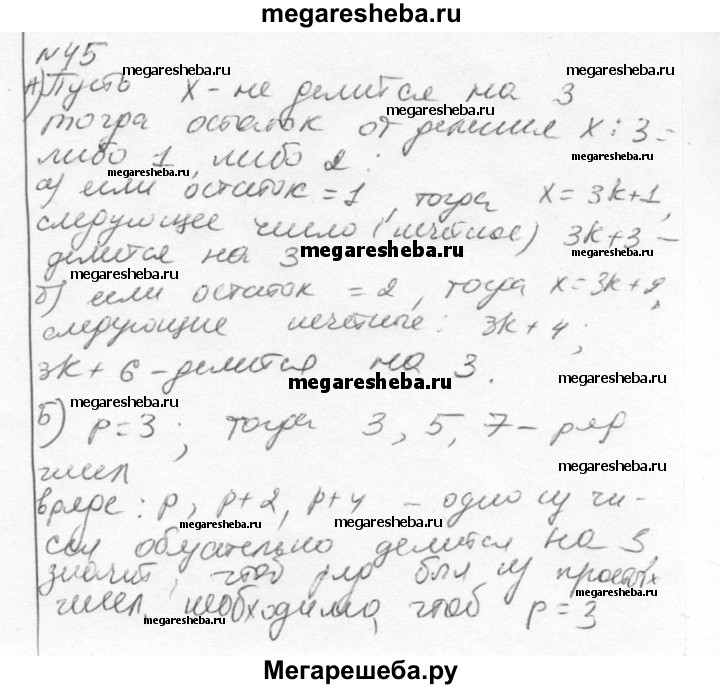 megaresheba.ru
N45
megaresheba.ru
А) Пусть х - не делится на 3
megaresheba.ru
тогда остаток от деления х : 3 =
либо 1, либо 2 :
megaresheba.ru
megaresheba.ru
а) если остаток = 1, тогда х = 3k+1,
следующее число (нечётное) 3k+3 -
megaresheba.ru
делится на 3
megaresheba.ru
megaresheba.ru
б) если остаток = 2, тогда х = 3k+2,
следующие нечётные : 3k+4 ;
megaresheba.ru
3k + 6 - делится на 3.
megaresheba.ru
megaresheba.ru
megaresheba.ru
б) p = 3 ; тогда 3, 5, 7 - ряд
чисел
megaresheba.ru
в ряде : p, p+2, p+4 - одно из чи-
megaresheba.ru
megaresheba.ru
сел обязательно делится на 3,
megaresheba.ru
значит, чтоб ряд был из простых
чисел необходимо, чтоб p = 3
megaresheba.ru
megaresheba.ru
Мегарешеба.ру